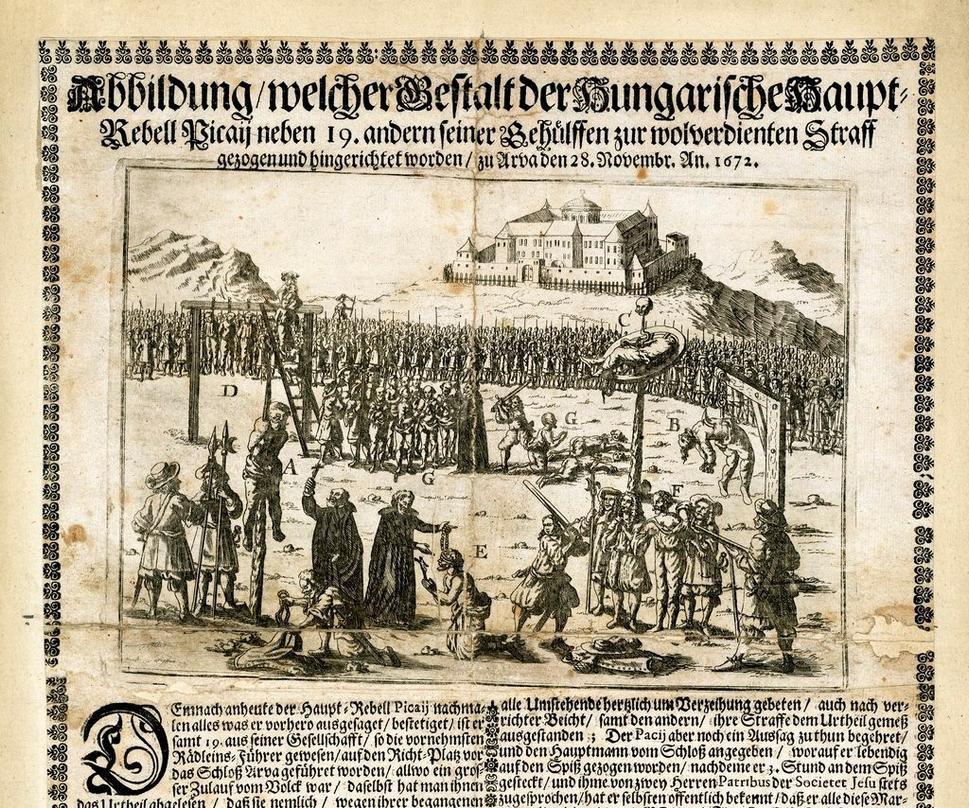 Abbildung/welcher Gestalt der Hungarische Haupt-
Rebell Picaij neben 19. andern seiner Gehülffen zur wolverdienten Straff
gezogen und hingerichtet worden/ zu Arva den 28. Novembr. An. 1672.
C
D
G
B
A
G
F
E
DEmnach anheute der Haupt-Rebell Picaij nachma-
len alles was er vorhero ausgesaget/bestetiget/ist er
samt 19. aus seiner Gesellschafft/ so die vornehmsten
Rädleins-Führer gewesen/auf den Richt-Platz vor
das Schloß Arva geführet worden/ allwo ein gros-
ser Zulauf vom Volck war/ daselbst hat man ihnen
das Urtheil abgelesen/ daß sie nemlich/ wegen ihrer begangenen
alle Umstehende hertzlich um Verzeihung gebeten/ auch nach ver-
richter Beicht/ samt den andern/ ihre Straffe dem Urtheil gemeß
ausgestanden; Der Pacij aber noch ein Aussag zu thun begehret/
und den Hauptmann vom Schloß angegeben/ worauf er lebendig
auf den Spiß gezogen worden/ nachdeme er 3. Stund an dem Spiß
gesteckt/ und ihme von zwey Herren Patribus der Societet Jesu stets
zugesprochen/hat er selbsten offentlich bekennt/daß er alle diese